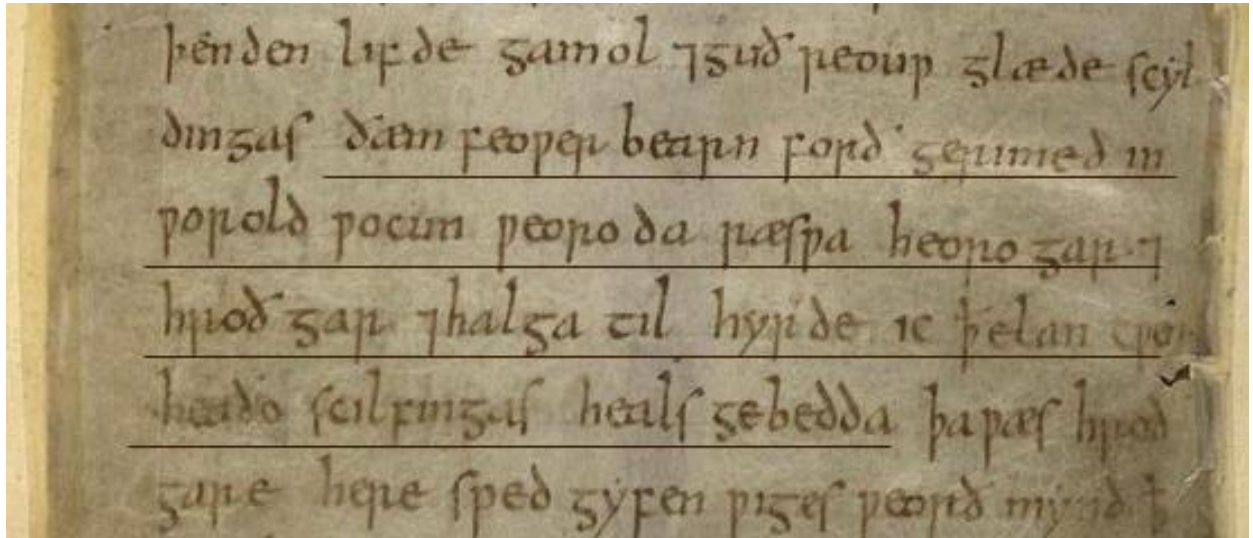 þenden lifde gamol ⁊guð reouƿ glæde scyl
dingas ðæm feoƿer bearn forð gerimed in
ƿorold ƿocun ƿeoroda ræsƿa heoro gar. ⁊
hroð gar ⁊halga til hyrde ic ꝥ elan cƿen
heaðo scilfingas heals gebedda þaƿæs hroð
gare here sped gyfen ƿiges ƿeorð mynd ꝥ